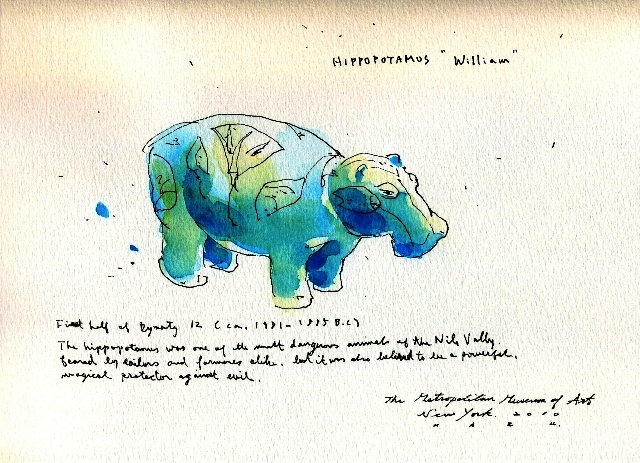 HIPPOPOTAMUS "William"
First half of Dynasty 12 (ca. 1981-1885 B.C)
The hippopotamus was one of the most dangerous animals of the Nile Valley.
feared by sailors and farmers alike. but it was also believed to be a powerful,
magical protector against evil.
The Metropolitan Museum of Art
New York. 2010